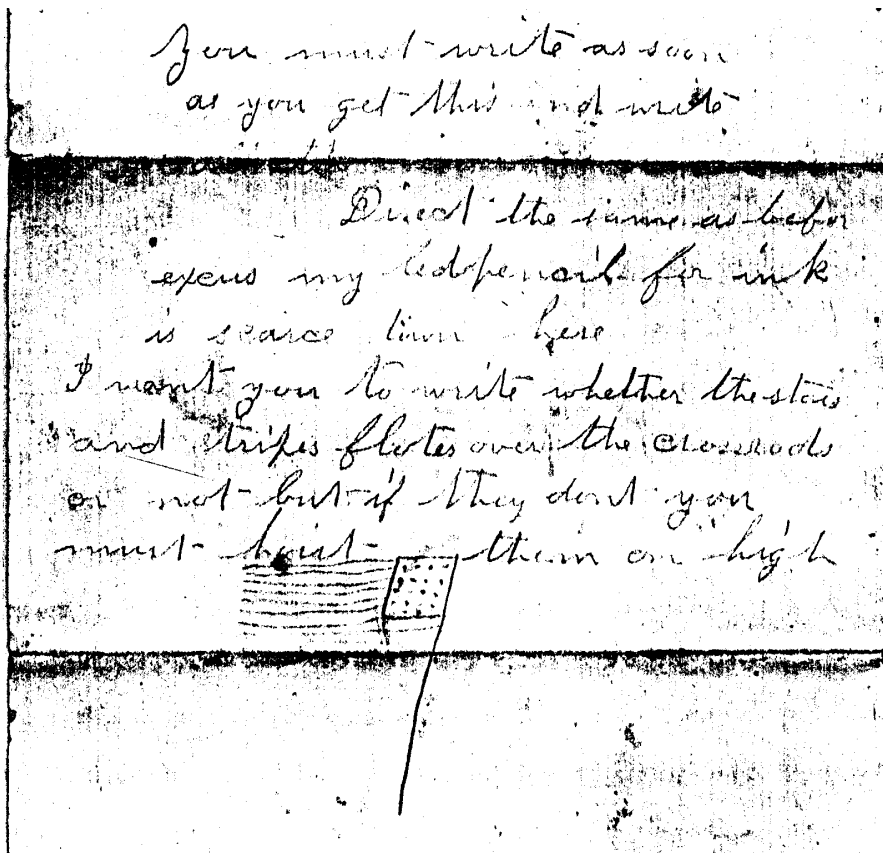 You must write as soon
as you get this and write
Direct the same as befor
excus my ledpencil for ink
is scarce down here
I want you to write whether the stars
and stripes flotes over the crossrods
or not but if they dont you
must hoist them on high